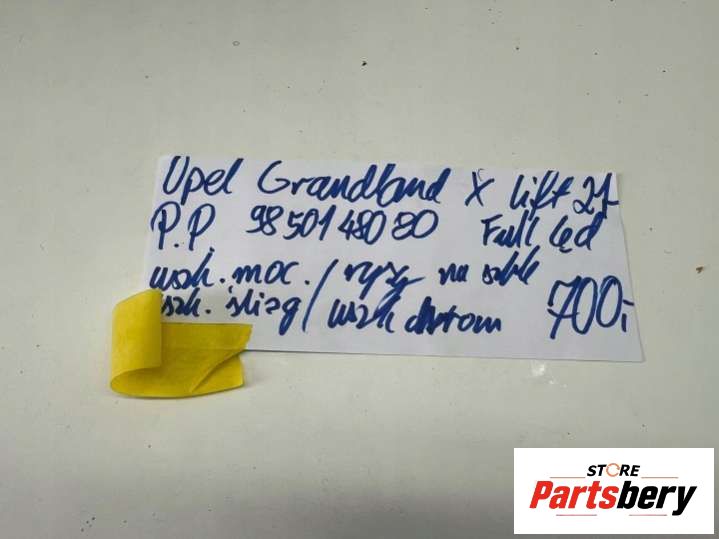 Opel Grandland X lift 21-
P.P. 98 501 480 80 Full led
uszk. moc. / rysy na szkle
uszk. ślizg / uszk chrom 700,-
STORE
Partsbery